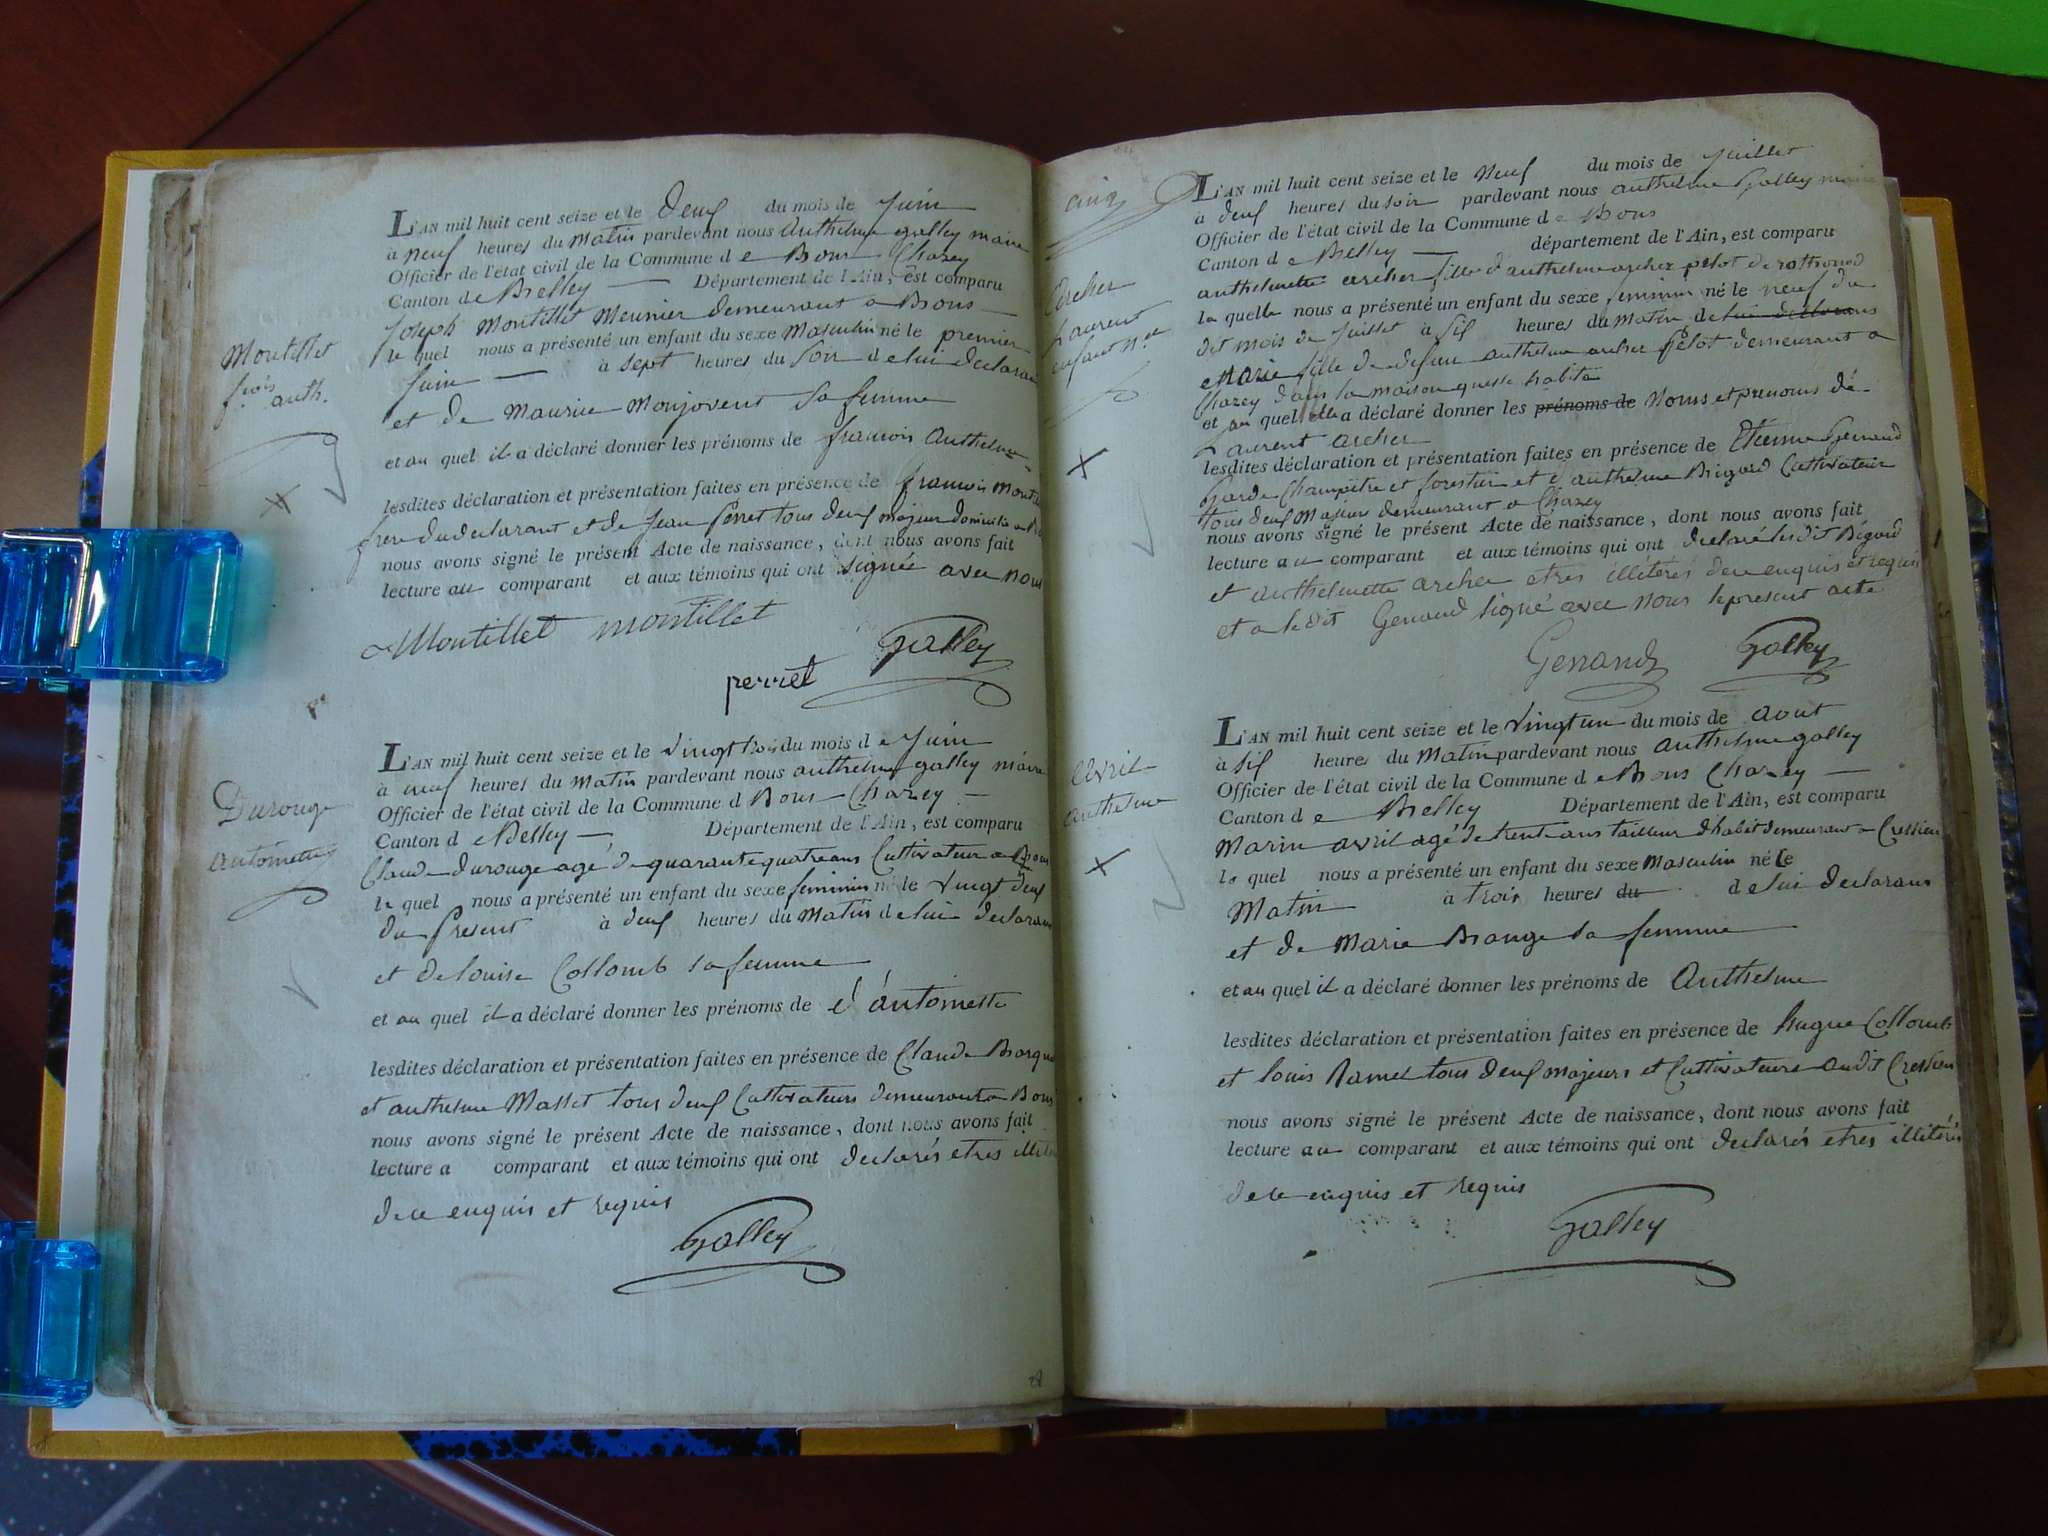 L'AN mil huit cent seize et le Deux du mois de Juin
à neuf heures du Matin pardevant nous Anthelme galley maire
Officier de l'état civil de la Commune de Bons Chazey
Canton de Belley — Département de l'Ain, est comparu
Joseph Montillet Meunier demeurant a Bons —
le quel nous a présenté un enfant du sexe Masculin né le premier
Juin — à sept heures du Soir de lui declarant
et de Maurice Monjovent Sa femme
et au quel il a déclaré donner les prénoms de francois Anthelme
lesdites déclaration et présentation faites en présence de francois Montillet
frere du declarant et de Jean Perret tous deux majeur domicilié a Bons
nous avons signé le présent Acte de naissance, dont nous avons fait
lecture au comparant et aux témoins qui ont signée avec nous
Montillet montillet
perret Galley
Montillet
frois
anth.
L'AN mil huit cent seize et le vingt trois du mois de Juin
à neuf heures du Matin pardevant nous anthelme galley maire
Officier de l'état civil de la Commune d Bons Chazey —
Canton de Belley — Département de l'Ain, est comparu
Claude Durouge agé de quarante quatre ans Cultivateur a Bons
le quel nous a présenté un enfant du sexe feminin né le vingt deux
du Present à deux heures du Matin de lui declarant
et de louise Collomb sa femme
et au quel il a déclaré donner les prénoms de d'antoinette
lesdites déclaration et présentation faites en présence de Claude
et anthelme Masset tous deux Cultivateurs demeurant a Bons
nous avons signé le présent Acte de naissance, dont nous avons fait
lecture a comparant et aux témoins qui ont declarés etres
de ce enquis et requis
Galley
Durouge
antoinette
cinq
L'AN mil huit cent seize et le Neuf du mois de Juillet
à deux heures du soir pardevant nous anthelme Galley maire
Officier de l'état civil de la Commune de Bons
Canton de Belley — département de l'Ain, est comparu
anthelmette archer fille d'anthelme archer pelot de
la quelle nous a présenté un enfant du sexe feminin né le neuf du
dit mois de Juillet à six heures du matin de lui declarans
Marie fille de defun anthelme archer Pelot demeurant a
Chazey dans la maison quelle habite
et au quel elle a déclaré donner les prénoms de Noms et prenoms de
Laurent archer
lesdites déclaration et présentation faites en présence de Etienne Genand
Garde Champêtre et forestier et d'anthelme Bigord Cultivateur
tous deux Majeurs demeurant a Chazey
nous avons signé le présent Acte de naissance, dont nous avons fait
lecture au comparant et aux témoins qui ont declaré ledit Bigord
et anthelmette archer etres illitérés de ce enquis et requis
et a ledit Genand signé avec nous le present acte
Genand Galley
archer
Laurent
enfant nel
L'AN mil huit cent seize et le vingt un du mois de aout
à six heures du Matin pardevant nous anthelme galley
Officier de l'état civil de la Commune de Bons Chazey —
Canton de Belley Département de l'Ain, est comparu
Marin avril agé de trente ans tailleur d'habit demeurant a Cressieu
le quel nous a présenté un enfant du sexe Masculin né le
Matin à trois heures du de lui declarans
et de Marie Sa femme
et au quel il a déclaré donner les prénoms de Anthelme
lesdites déclaration et présentation faites en présence de hugue Collomb
et louis Ramel tous deux majeurs et Cultivateurs au dit Cressieu
nous avons signé le présent Acte de naissance, dont nous avons fait
lecture au comparant et aux témoins qui ont declarés etres illitérés
de ce enquis et requis
Galley
Avril
anthelme